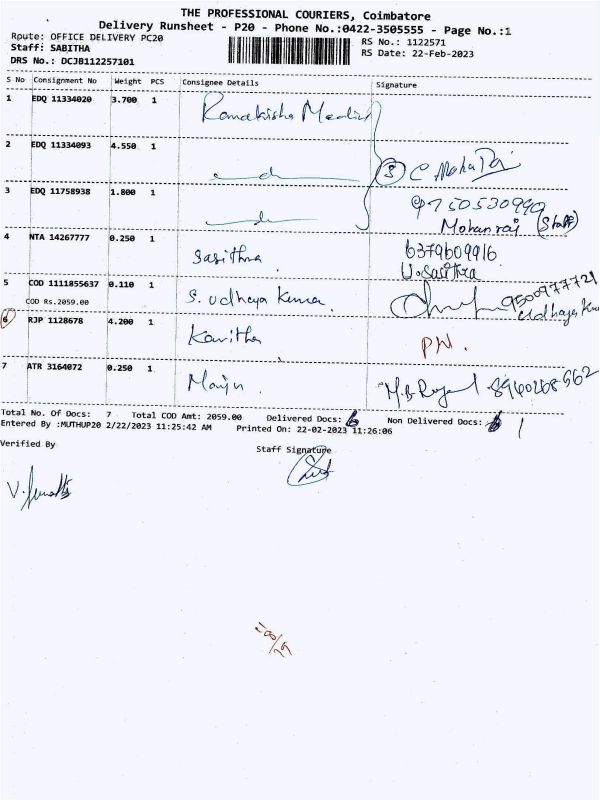 THE PROFESSIONAL COURIERS, Coimbatore
Delivery Runsheet - P20 - Phone No.:0422-3505555 - Page No.:1
Rpute: OFFICE DELIVERY PC20
Staff: SABITHA
DRS No.: DCJB112257101
RS No.: 1122571
RS Date: 22-Feb-2023
S No Consignment No Weight PCS Consignee Details Signature
1 EDQ 11334020 3.700 1
2 EDQ 11334093 4.550 1
3 EDQ 11758938 1.800 1
9750530990
Mohanraj (Staff)
4 NTA 14267777 0.250 1 Sasithra
6379609916
U. Sasithra
5 COD 1111855637 0.110 1 S. Udhaya Kumar 9500977721
COD Rs.2059.00
6 RJP 1128678 4.200 1 Kavitha
7 ATR 3164072 0.250 1
Total No. Of Docs: 7 Total COD Amt: 2059.00 Delivered Docs: 6 Non Delivered Docs: 1
Entered By :MUTHUP20 2/22/2023 11:25:42 AM Printed On: 22-02-2023 11:26:06
Verified By
Staff Signature